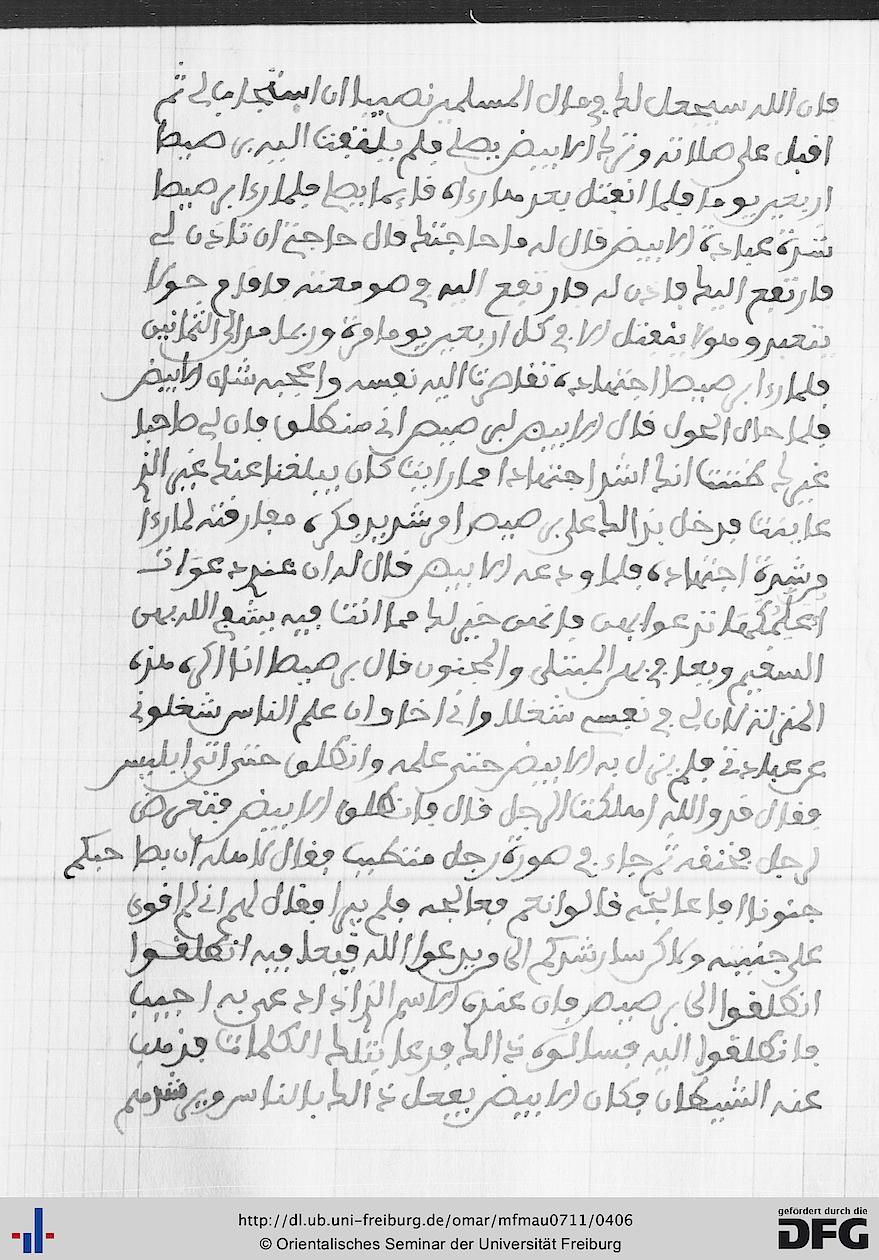 فان الله سيجعل لك في مال المسلمين نصيبا ان استجاب لي ثم
اقبل على صلاته وترك الابيض يصلي فلم يلتفت اليه برصيصا
اربعين يوما فلما انفتل بعد مداراه قايما يصلي فلما رءا برصيصا
شدة عبادة الابيض قال له ما حاجتك قال حاجتي ان تاذن لي
فارتفع اليك فاذن له فارتفع اليه في صومعته فاقام حولا
يتعبد ولا ينفتل الا في كل اربعين يوما مرة وربما مد الى الثمانين
فلما رءا برصيصا اجتهاده تقاصرت اليه نفسه واعجبه شان الابيض
فلما حال الحول قال الابيض لبرصيصا اني منطلق فان لي صاحبا
غيرك ظننت انك اشد اجتهادا مما رايت كان يبلغنا عنك غير الذي
عاينت فدخل بذالك على برصيصا امر شديد وكره مفارقته لما رءا
من شدة اجتهاده فلما ودعه الابيض قال له ان عندي دعوات
اعلمكها تدعوا بهن فانهن خير لك مما انت فيه يشفي الله بهن
السقيم ويعافي بهن المبتلى والمجنون قال برصيصا انا اكره هذه
المنزلة لان لي في نفسي شغلا واني اخاف ان علم الناس شغلوني
عن عبادتي فلم يزل به الابيض حتى علمه وانطلق حتى اتى ابليس
فقال قد والله اهلكت الرجل قال فانطلق الابيض فتعرض
لرجل فخنقه ثم جاء في صورة رجل متطبب فقال لاهله ان بصاحبكم
جنونا افاعالجه قالوا نعم فعالجه فلم يبرا فقال لهم اني لم اقوى
على جنيته ولاكن سارشدكم الى من يدعوا الله فيعافيه انطلقوا
انطلقوا الى برصيصا فان عنده الاسم الذي اذا دعي به اجيب
فانطلقوا اليه فسالوه ذالك فدعا بتلك الكلمات فذهب
عنه الشيطان فكان الابيض يفعل ذالك بالناس ويرشدهم
http://dl.ub.uni-freiburg.de/omar/mfmau0711/0406
© Orientalisches Seminar der Universität Freiburg
gefördert durch die
DFG